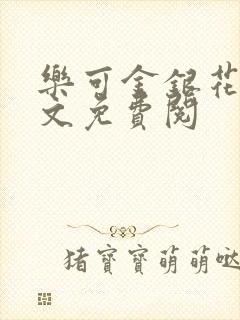 樂可金銀花
文免費閱
猪寶寶萌萌噠